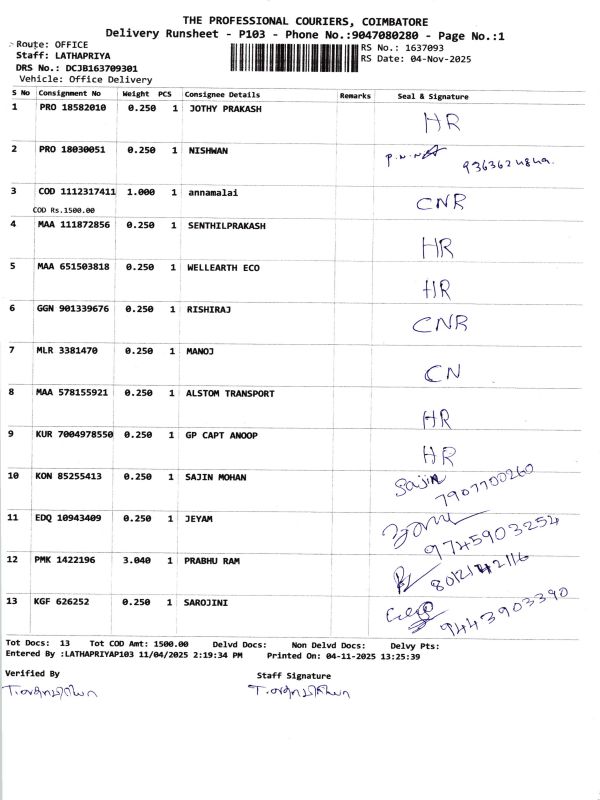 THE PROFESSIONAL COURIERS, COIMBATORE
Delivery Runsheet - P103 - Phone No.:9047080280 - Page No.:1
Route: OFFICE
RS No.: 1637093
Staff: LATHAPRIYA
RS Date: 04-Nov-2025
DRS No.: DCJB163709301
Vehicle: Office Delivery
S No Consignment No Weight PCS Consignee Details Remarks Seal & Signature
1 PRO 18582010 0.250 1 JOTHY PRAKASH HR
2 PRO 18030051 0.250 1 NISHWAN
3 COD 1112317411 1.000 1 annamalai CNR
COD Rs.1500.00
4 MAA 111872856 0.250 1 SENTHILPRAKASH HR
5 MAA 651503818 0.250 1 WELLEARTH ECO HR
6 GGN 901339676 0.250 1 RISHIRAJ CNR
7 MLR 3381470 0.250 1 MANOJ CN
8 MAA 578155921 0.250 1 ALSTOM TRANSPORT HR
9 KUR 7004978550 0.250 1 GP CAPT ANOOP HR
10 KON 85255413 0.250 1 SAJIN MOHAN Sajin
7907700260
11 EDQ 10943409 0.250 1 JEYAM
9745903254
12 PMK 1422196 3.040 1 PRABHU RAM
13 KGF 626252 0.250 1 SAROJINI
9443903390
Tot Docs: 13 Tot COD Amt: 1500.00 Delvd Docs: Non Delvd Docs: Delvy Pts:
Entered By :LATHAPRIYAP103 11/04/2025 2:19:34 PM Printed On: 04-11-2025 13:25:39
Verified By Staff Signature